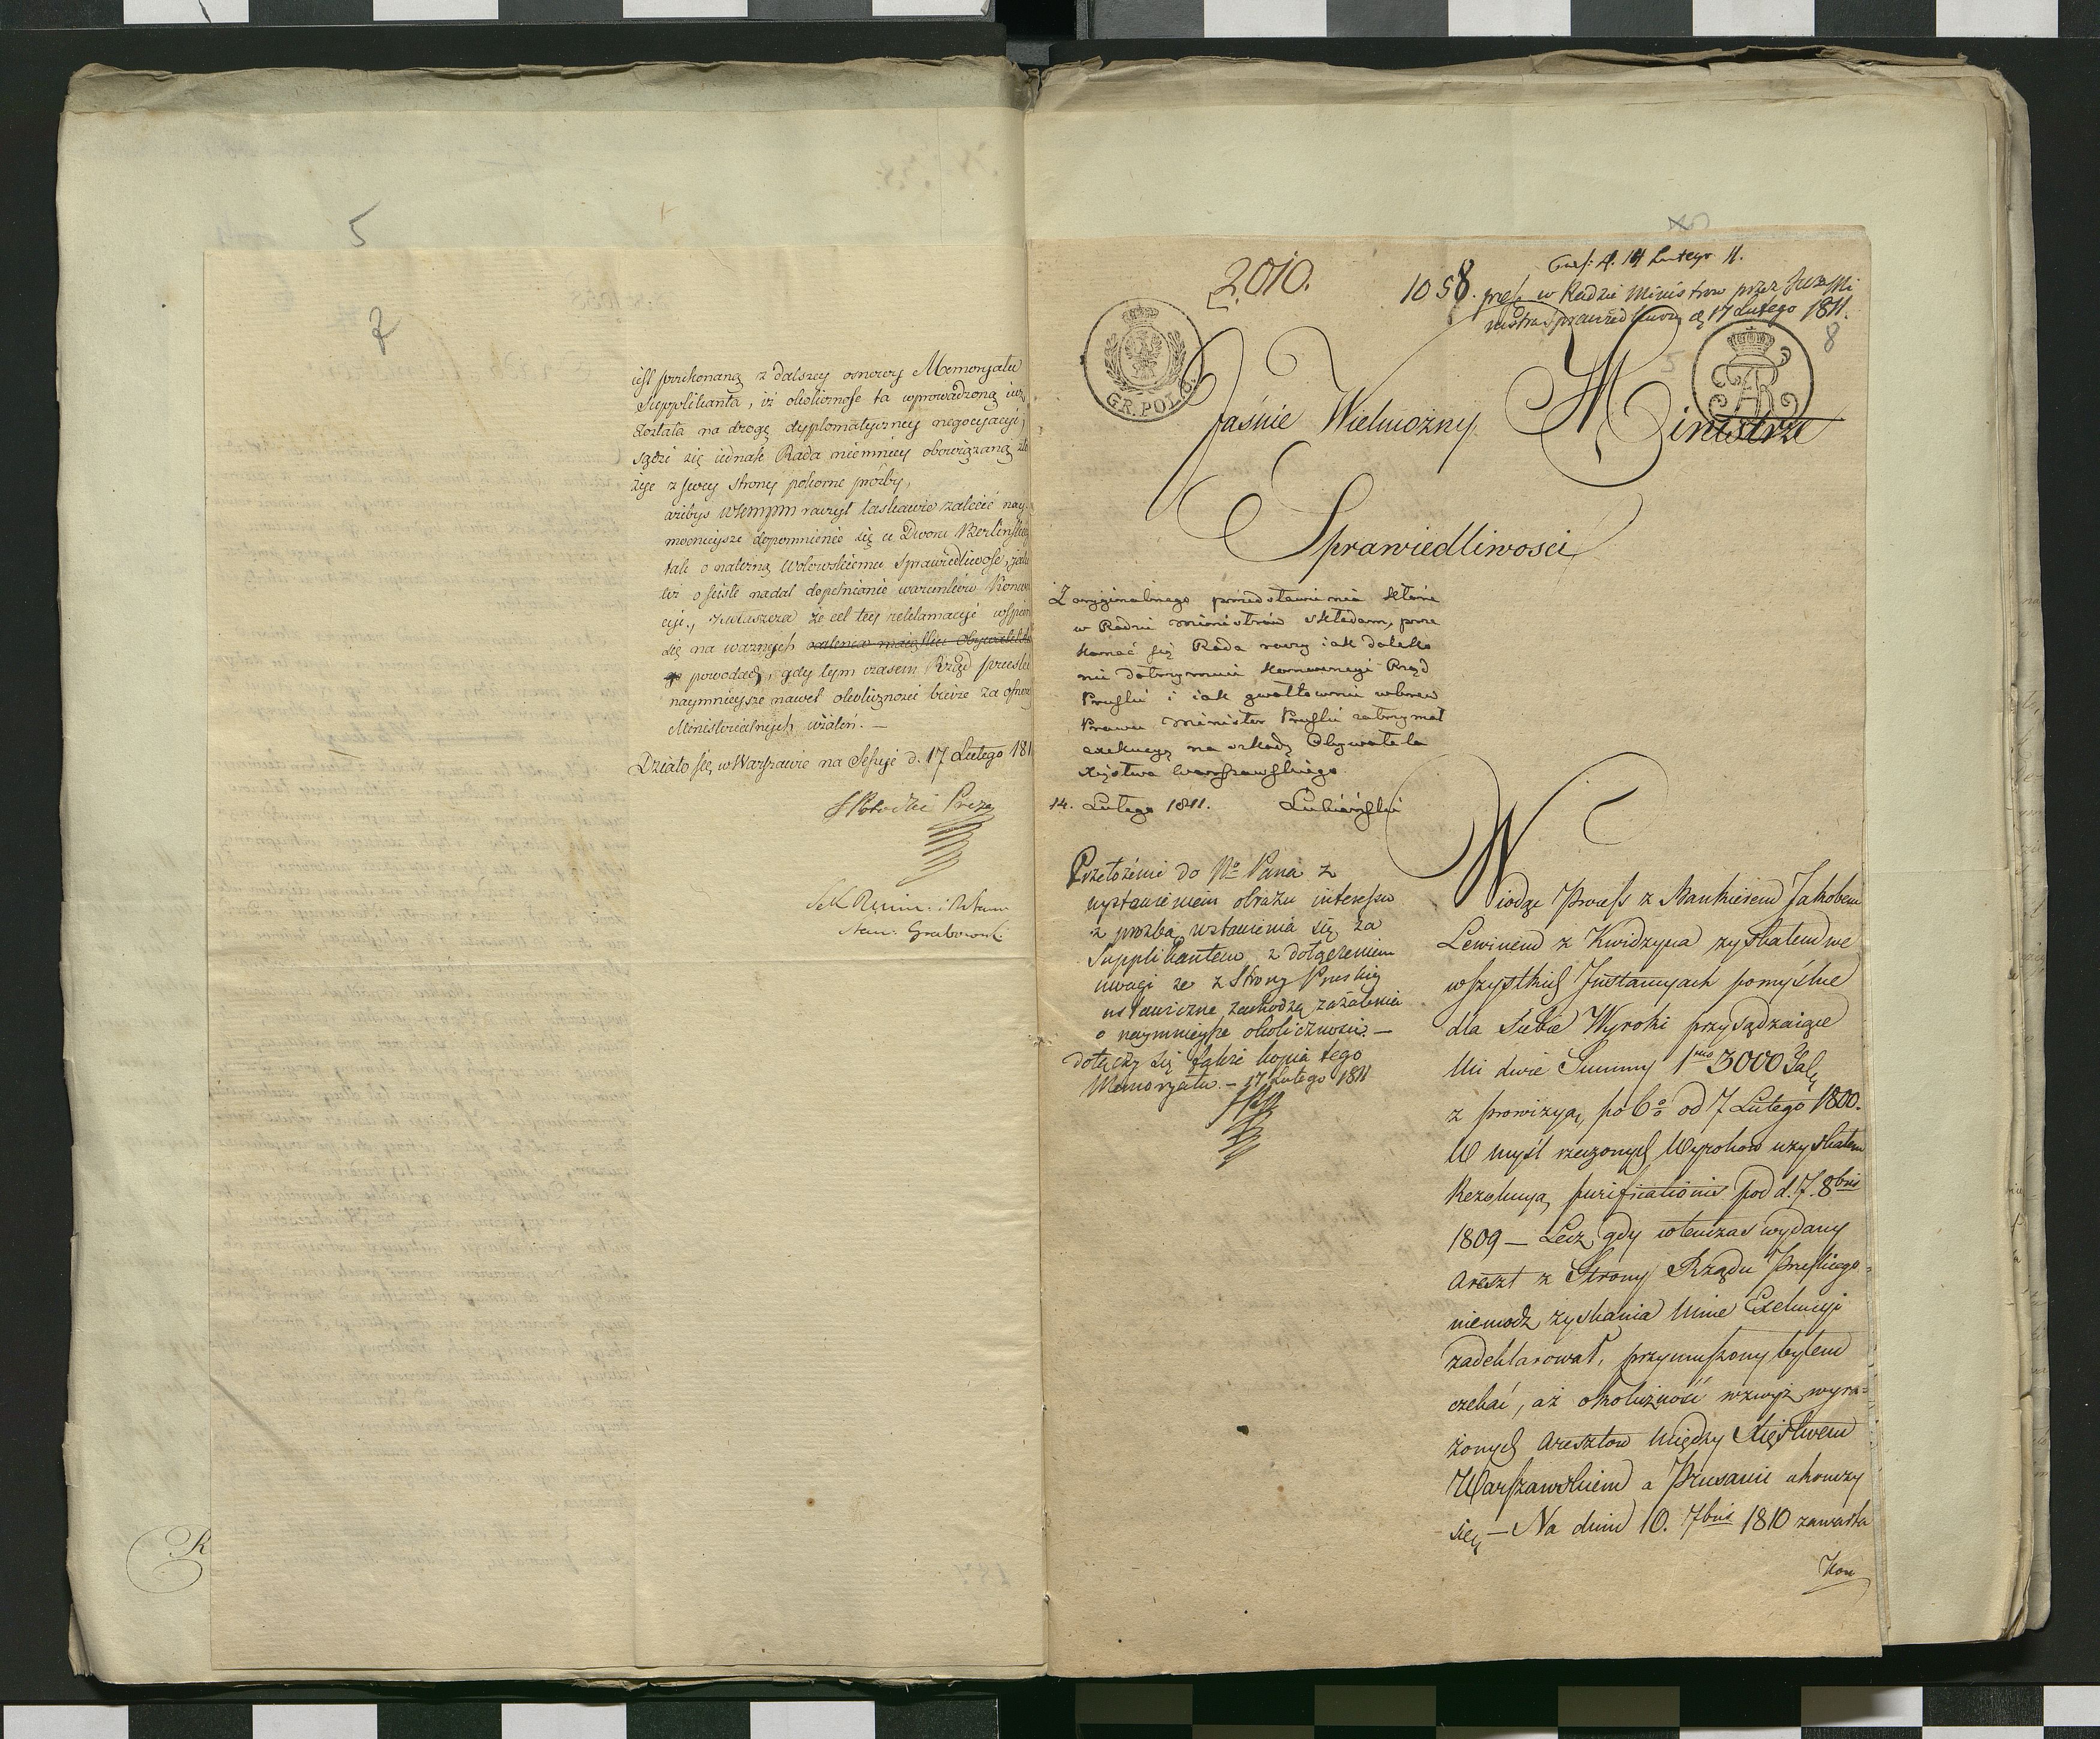 5
7
iest przekonaną z dalszey osnowy Memoryału
Supplikanta, iż okoliczność ta wprowadzoną iuż
została na drogę dyplomatyczney negocyacyi,
sądzi się iednak Rada niemniey obowiązaną
z swey strony pokorne prośby,
ażebyś WKMPM raczył łaskawie zalecić nay-
mocnieysze dopomnienie się u Dworu Berlińskiego
tak o należną Wołowskiemu Sprawiedliwość, jako
też o ściśle nadal dopełnianie warunków Konwen
cyi, zwłaszcza że cel tey reklamacyi wspiera
się na ważnych
powodach, gdy tym czasem Rząd pruski
naymnieysze nawet okoliczności bierze za osnowę
Ministeryalnych użaleń. —
Działo się w Warszawie na Sessyi d. 17 Lutego 181
S Potocki Prezes
Stan: Grabowski
R
2010.
1058.
14 Lutego 11.
pres. w Radzie Ministrow przez JW Mi
nistra sprawiedliwości d. 17 Lutego 1811.
8
5
GR. POL. 6.
Jaśnie Wielmożny Ministrze
Sprawiedliwosci
Z oryginalnego przedstawienia które
w Radzie Ministrów składam, prze
konać się Rada raczy iak daleko
nie dotrzymuie konwencyi Rząd
Pruski i iak gwałtownie wbrew
Prawu Minister Pruski zatrzymał
exekucyą na szkodę Obywatela
Xięstwa Warszawskiego
14. Lutego 1811. Łubieński
Przełożenie do No Pana z
wystawieniem obrazu interessu
z prozbą wstawienia się za
Supplikantem z dołączeniem
uwagi że z Strony Pruskiey
ustawiczne zachodzą zażalenia
o naymnieysze okoliczności. —
dołączy się także kopia tego
Memoryału. — 17 Lutego 1811
Wiodąc Process z Bankierem Jakobem
Lewinem z Kwidzyna zyskałem we
wszystkich Instancyach pomyślne
dla Siebie Wyroki przysądzaiące
Mi dwie Summy 1mo 3000 Tal.
z prowizyą po 6 % od 7 Lutego 1800.
W myśl rzeczonych Wyrokow uzyskałem
Rezolucyą purificationis pod d. 7. 8bris
1809 — Lecz gdy wtenczas wydany
Areszt z Strony Rządu Pruskiego
niemoc zyskania Mnie Exekucyi
zadeklarował, przymuszony byłem
czekać, aż okoliczność wzwyż wyra=
żonych Aresztow między Xięstwem
Warszawskiem a Prusami ukonczy
się, — Na dniu 10. 7bris 1810 zawarta
Kon